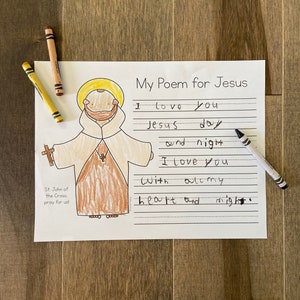 My Poem for Jesus
I love you
Jesus day
and night
I love you
with all my
heart and night.
St John of
the Cross,
pray for us!